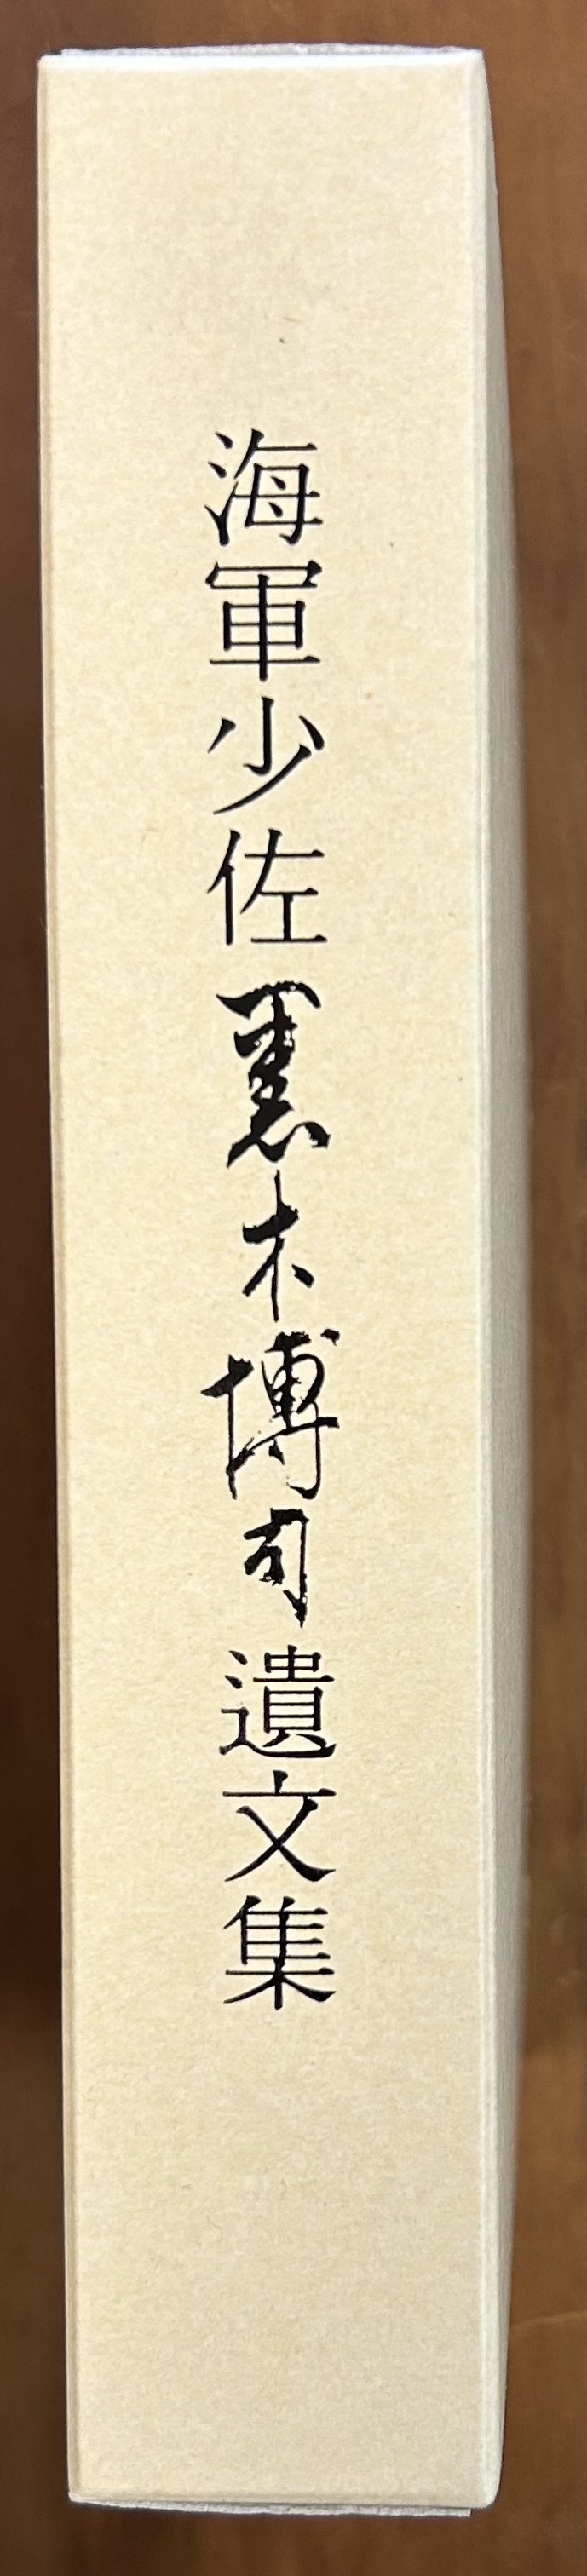 海軍少佐黒木博司遺文集